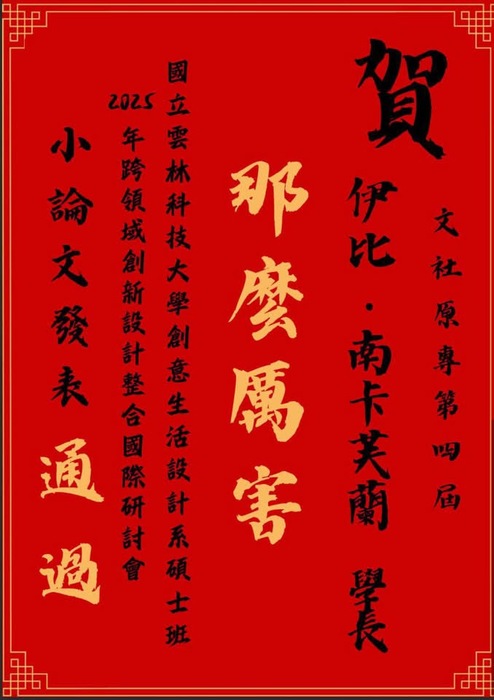 賀
文社原專第四屆
伊比·南卡芙蘭 學長
那麼厲害
國立雲林科技大學創意生活設計系碩士班
2025年跨領域創新設計整合國際研討會
小論文發表 通過